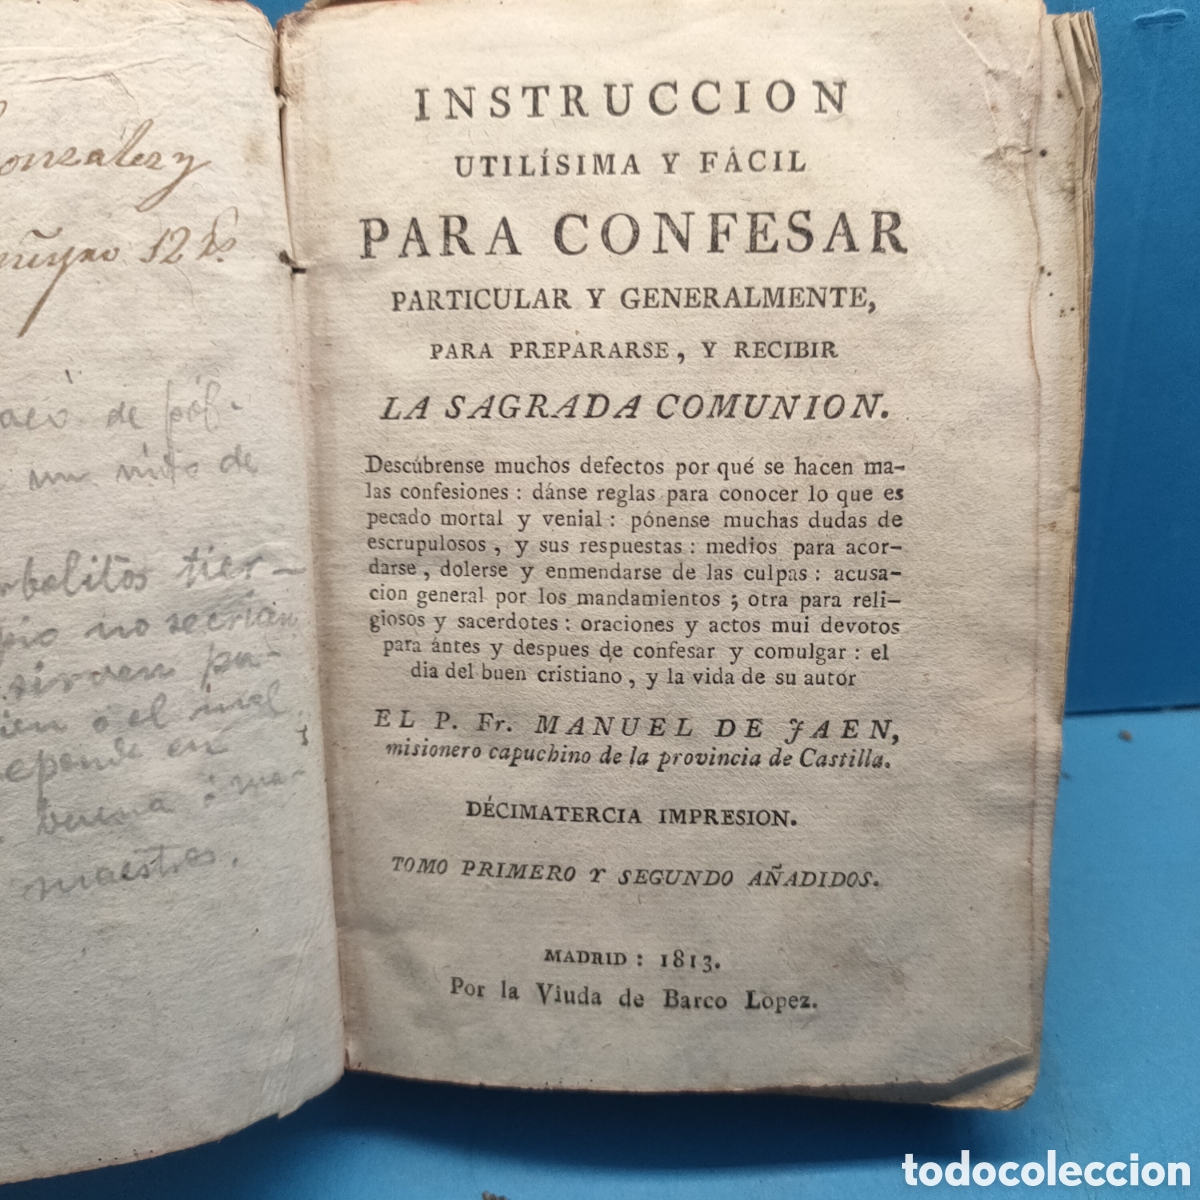 onzalez y
12 rs.
aeó de pól-
un niño de
rbolitos tier-
no se crian
sirven pa-
ien o el mal
epende en
buena o ma-
maestros.
INSTRUCCION
UTILÍSIMA Y FÁCIL
PARA CONFESAR
PARTICULAR Y GENERALMENTE,
PARA PREPARARSE, Y RECIBIR
LA SAGRADA COMUNION.
Descúbrense muchos defectos por qué se hacen ma-
las confesiones : dánse reglas para conocer lo que es
pecado mortal y venial : pónense muchas dudas de
escrupulosos, y sus respuestas : medios para acor-
darse, dolerse y enmendarse de las culpas : acusa-
cion general por los mandamientos ; otra para reli-
giosos y sacerdotes : oraciones y actos mui devotos
para ántes y despues de confesar y comulgar : el
dia del buen cristiano, y la vida de su autor
EL P. Fr. MANUEL DE JAEN,
misionero capuchino de la provincia de Castilla.
DÉCIMATERCIA IMPRESION.
TOMO PRIMERO Y SEGUNDO AÑADIDOS.
MADRID : 1813.
Por la Viuda de Barco Lopez.
todocoleccion